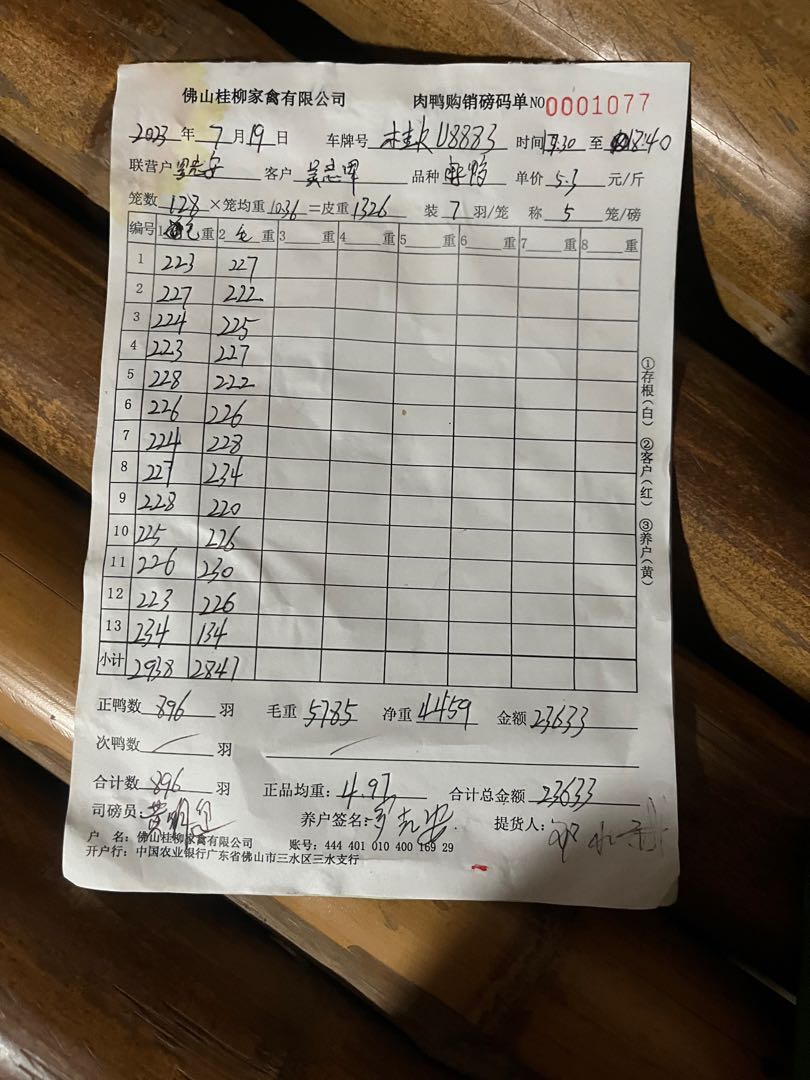 佛山桂柳家禽有限公司 肉鸭购销磅码单 NO 0001077
2023 年 7 月 19 日 车牌号 U8883 时间 17:30 至 18:40
联营户 客户 品种 单价 5.3 元/斤
笼数 128 ×笼均重 10.36 =皮重 1326 装 7 羽/笼 称 5 笼/磅
编号 1 毛 重 2 毛 重 3 重 4 重 5 重 6 重 7 重 8 重
1 223 227
2 227 222
3 224 225
4 223 227
5 228 222
6 226 226
7 224 228
8 227 234
9 228 220
10 225 226
11 226 230
12 223 226
13 234 134
小计 2938 2847
①存根(白) ②客户(红) ③养户(黄)
正鸭数 896 羽 毛重 5785 净重 4459 金额 23633
次鸭数 / 羽 /
合计数 896 羽 正品均重: 4.97 合计总金额 23633
司磅员: 养户签名: 提货人:
户 名: 佛山桂柳家禽有限公司 账号: 444 401 010 400 169 29
开户行: 中国农业银行广东省佛山市三水区三水支行